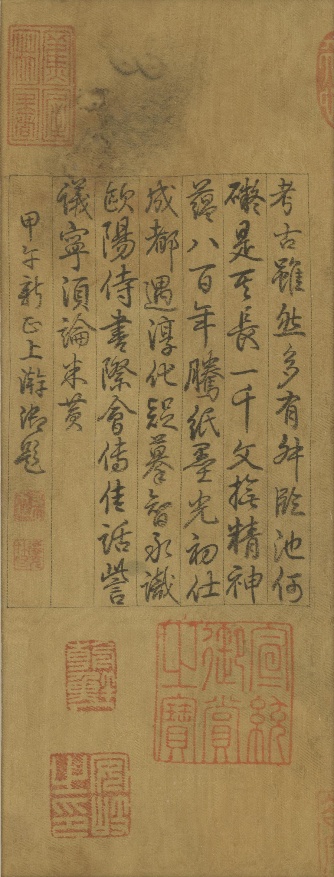 考古雖然多有舛臨池何
礙是其長一千文擅精神
蘊八百年騰紙墨光初仕
成都遇淳化疑摹智永識
歐陽侍書際會傳佳話訾
議寧須論米黃
甲午新正上澣御題
宣統
御賞
之寶